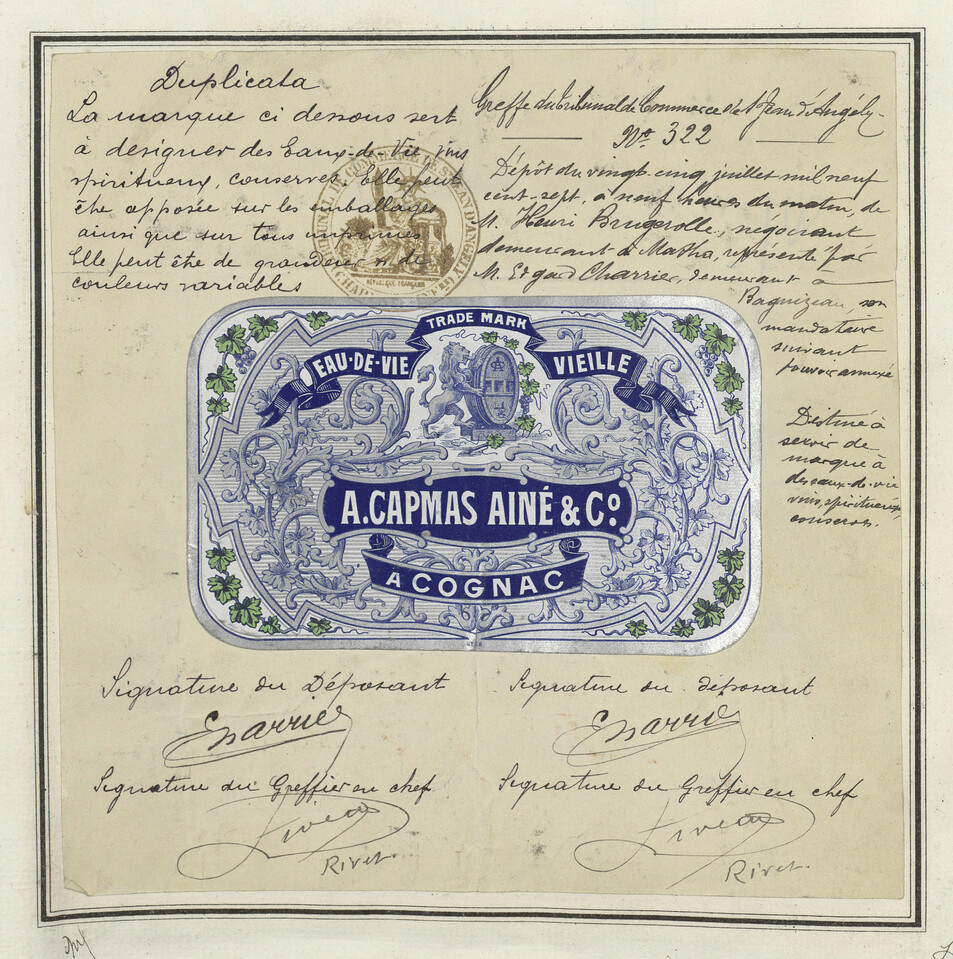 Duplicata
La marque ci dessous sert
à designer des Eaux-de-Vie vins
spiritueux, conserves. Elle peut
être apposée sur les emballages
ainsi que sur tous imprimés
Elle peut être de grandeur et de
couleurs variables
Greffe du Tribunal de Commerce de St Jean d'Angély
No 322
Dépôt du vingt-cinq juillet mil neuf
cent-sept, à neuf heures du matin, de
M. Henri Brugerolle, négociant
demeurant à Matha, représenté par
M. Edgard Charrier, demeurant à
Bagnizeau, son
mandataire
suivant
pouvoir annexé
Destiné à
servir de
marque à
des eaux-de-vie
vins, spiritueux,
conserves.
TRIBUNAL DE COMMERCE DE ST JEAN D'ANGELY
RÉPUBLIQUE FRANÇAISE
TRADE MARK
EAU-DE-VIE VIEILLE
A. CAPMAS AINÉ & Co.
A COGNAC
Signature du Déposant
Signature du déposant
Signature du Greffier en chef
Signature du Greffier en chef
Rivet.
Rivet.